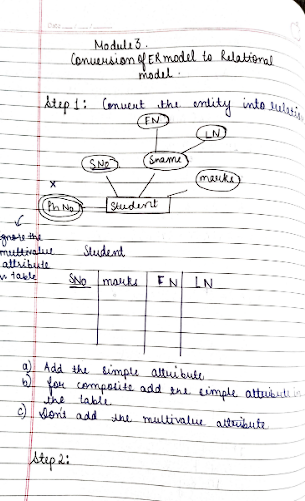 Module 3.
Conversion of ER model to Relational
model.
Step 1: Convert the entity into
FN
LN
SNo
Sname
marks
x
Ph No
Student
ignore the
multivalue
attribute
in table
Student
SNo marks FN LN
a) Add the simple attribute
b) for composite add the simple attribute in
the table
c) Don't add the multivalue attribute
Step 2: